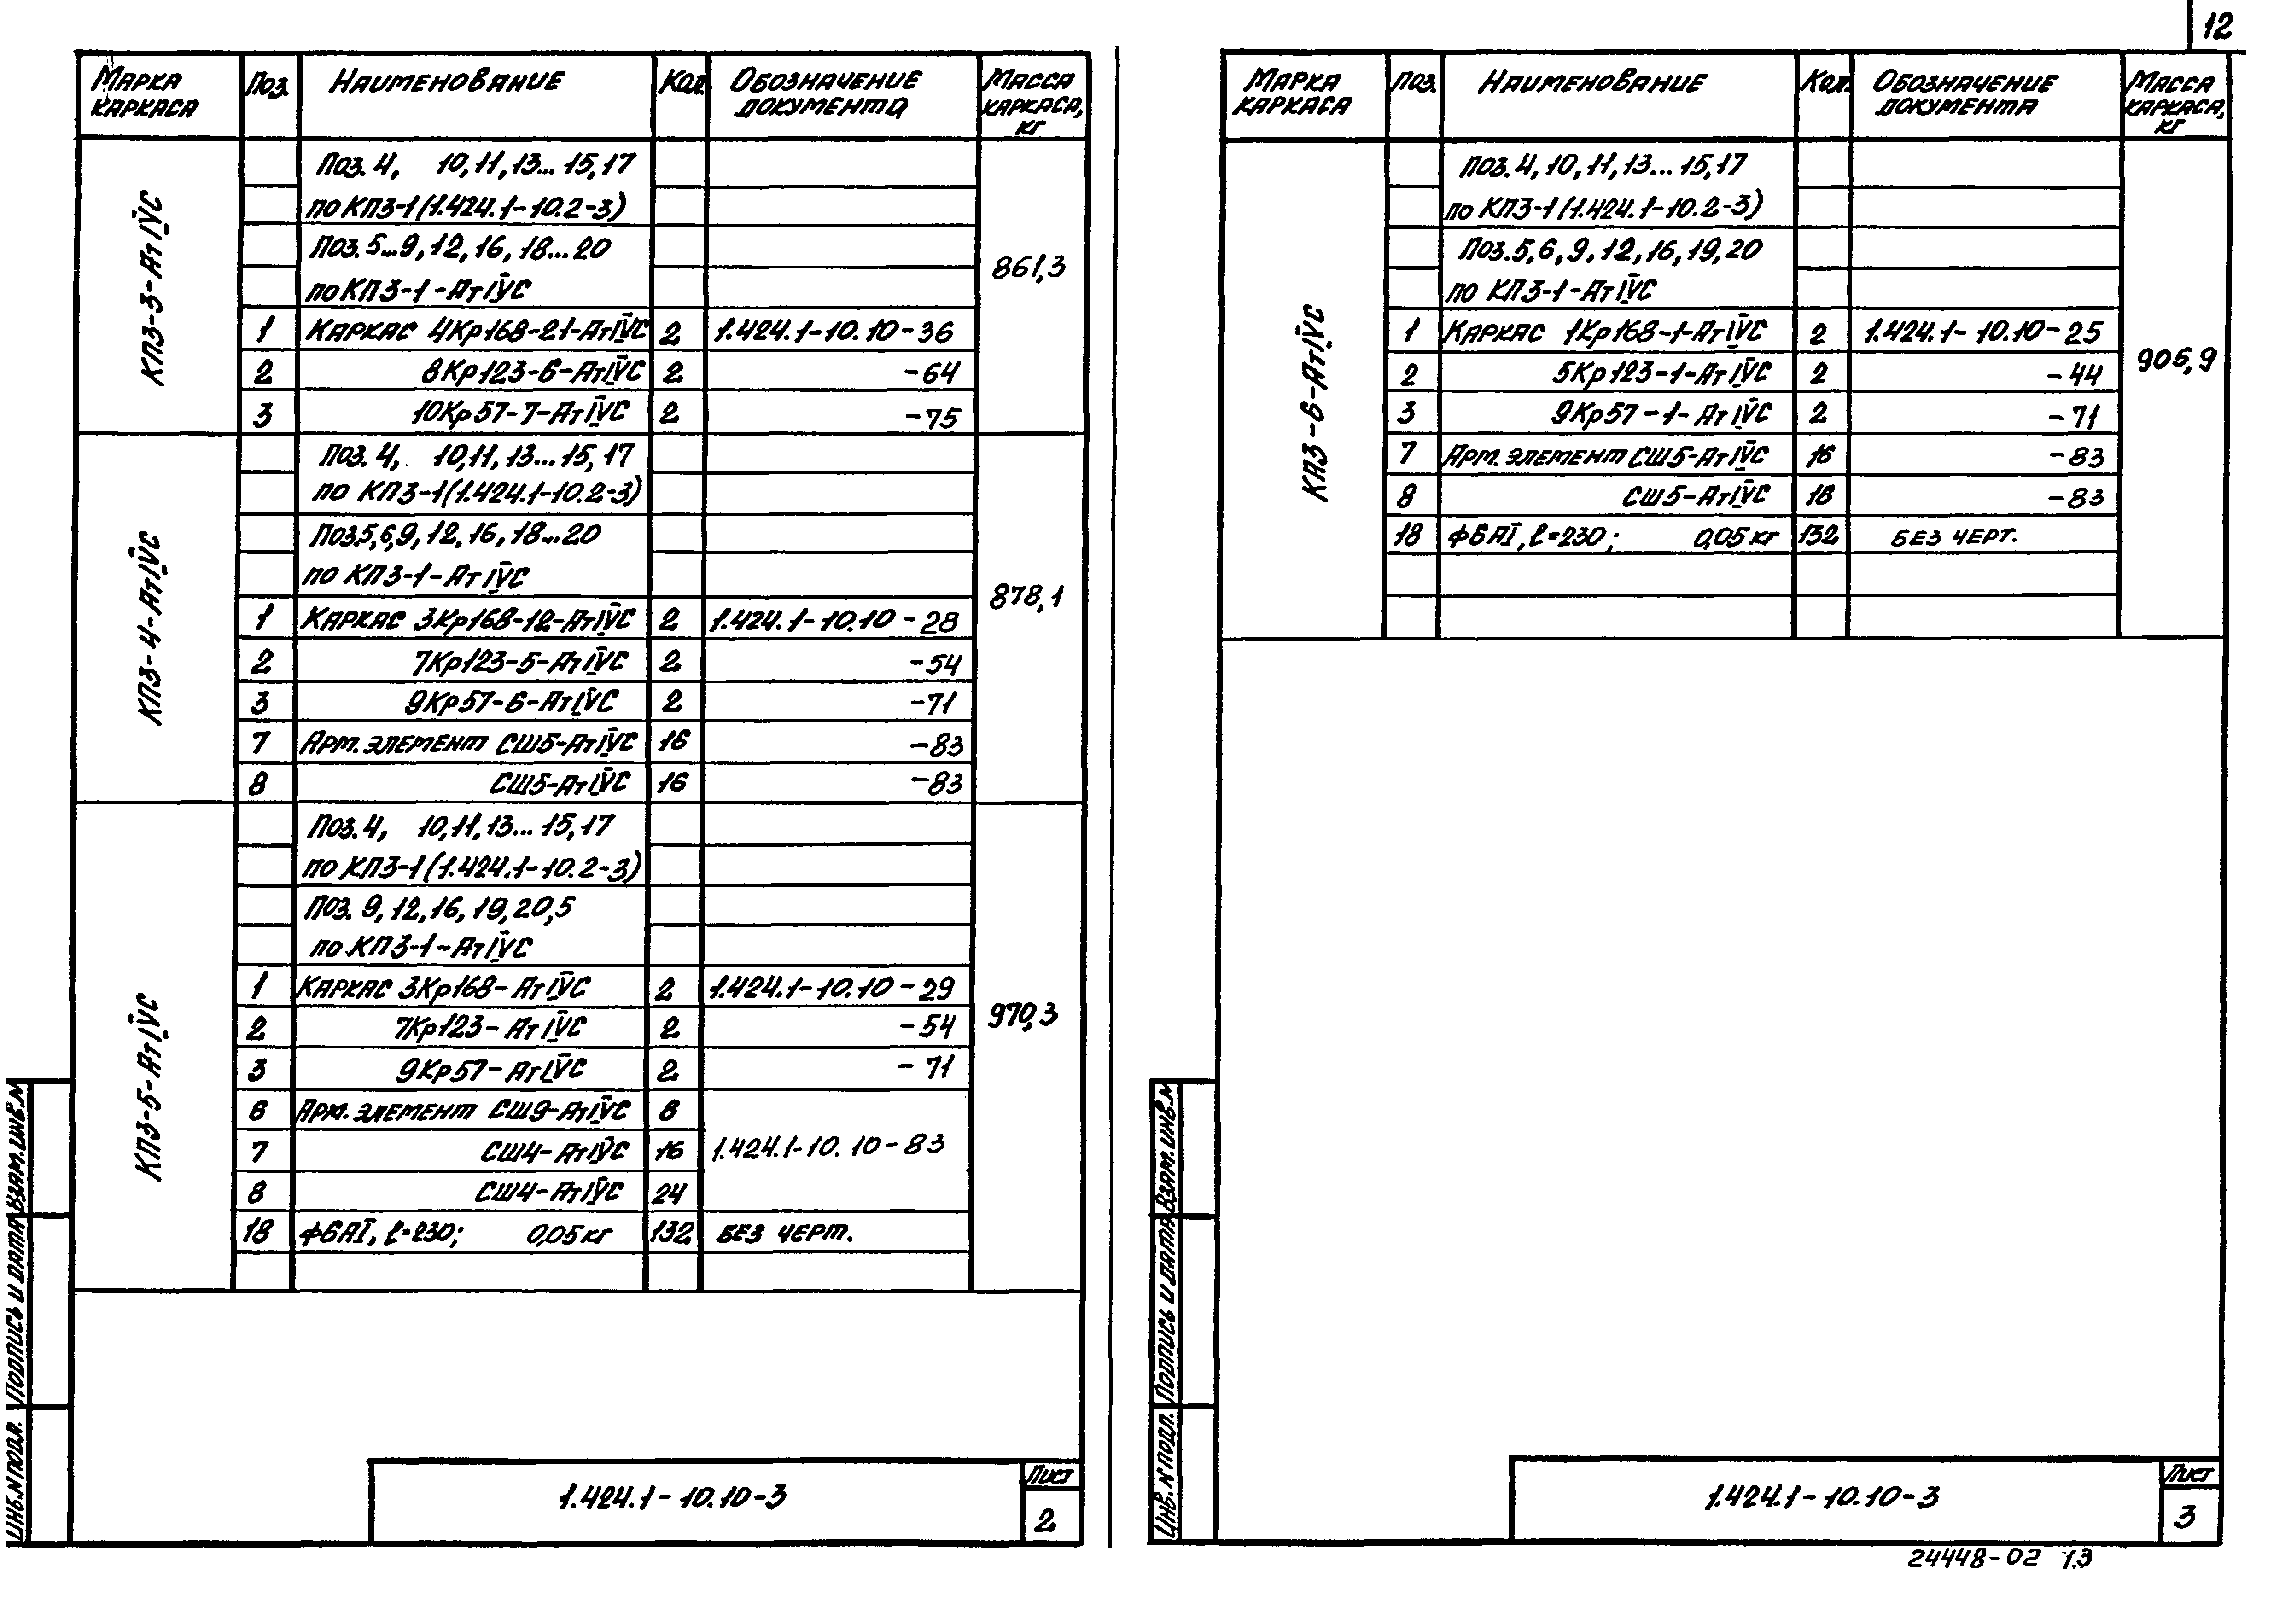 Марка каркаса Поз. Наименование Кол. Обозначение документа Масса каркаса, кг
КП3-3-АтIVС
Поз. 4, 10, 11, 13... 15, 17
по КП3-1 (1.424.1-10.2-3)
Поз. 5...9, 12, 16, 18...20
по КП3-1-АтIVС
1 Каркас 4Кр168-21-АтIVС 2 1.424.1-10.10-36
2 8Кр123-6-АтIVС 2 -64
3 10Кр57-7-АтIVС 2 -75
861,3
КП3-4-АтIVС
Поз. 4, 10, 11, 13...15, 17
по КП3-1 (1.424.1-10.2-3)
Поз. 5, 6, 9, 12, 16, 18...20
по КП3-1-АтIVС
1 Каркас 3Кр168-12-АтIVС 2 1.424.1-10.10-28
2 7Кр123-5-АтIVС 2 -54
3 9Кр57-6-АтIVС 2 -71
7 Арм. элемент СШ5-АтIVС 16 -83
8 СШ5-АтIVС 16 -83
878,1
КП3-5-АтIVС
Поз. 4, 10, 11, 13...15, 17
по КП3-1 (1.424.1-10.2-3)
Поз. 9, 12, 16, 19, 20, 5
по КП3-1-АтIVС
1 Каркас 3Кр168-АтIVС 2 1.424.1-10.10-29
2 7Кр123-АтIVС 2 -54
3 9Кр57-АтIVС 2 -71
6 Арм. элемент СШ9-АтIVС 8
7 СШ4-АтIVС 16 1.424.1-10.10-83
8 СШ4-АтIVС 24
18 ф6АI, ℓ=230; 0,05 кг 132 без черт.
970,3
Инв. N подл. Подпись и дата Взам. инв. N
1.424.1-10.10-3
Лист
2
12
Марка каркаса Поз. Наименование Кол. Обозначение документа Масса каркаса, кг
КП3-6-АтIVС
Поз. 4, 10, 11, 13...15, 17
по КП3-1 (1.424.1-10.2-3)
Поз. 5, 6, 9, 12, 16, 19, 20
по КП3-1-АтIVС
1 Каркас 1Кр168-1-АтIVС 2 1.424.1-10.10-25
2 5Кр123-1-АтIVС 2 -44
3 9Кр57-1-АтIVС 2 -71
7 Арм. элемент СШ5-АтIVС 16 -83
8 СШ5-АтIVС 18 -83
18 ф6АI, ℓ=230; 0,05 кг 132 без черт.
905,9
Инв. N подл. Подпись и дата Взам. инв. N
1.424.1-10.10-3
Лист
3
24448-02 13